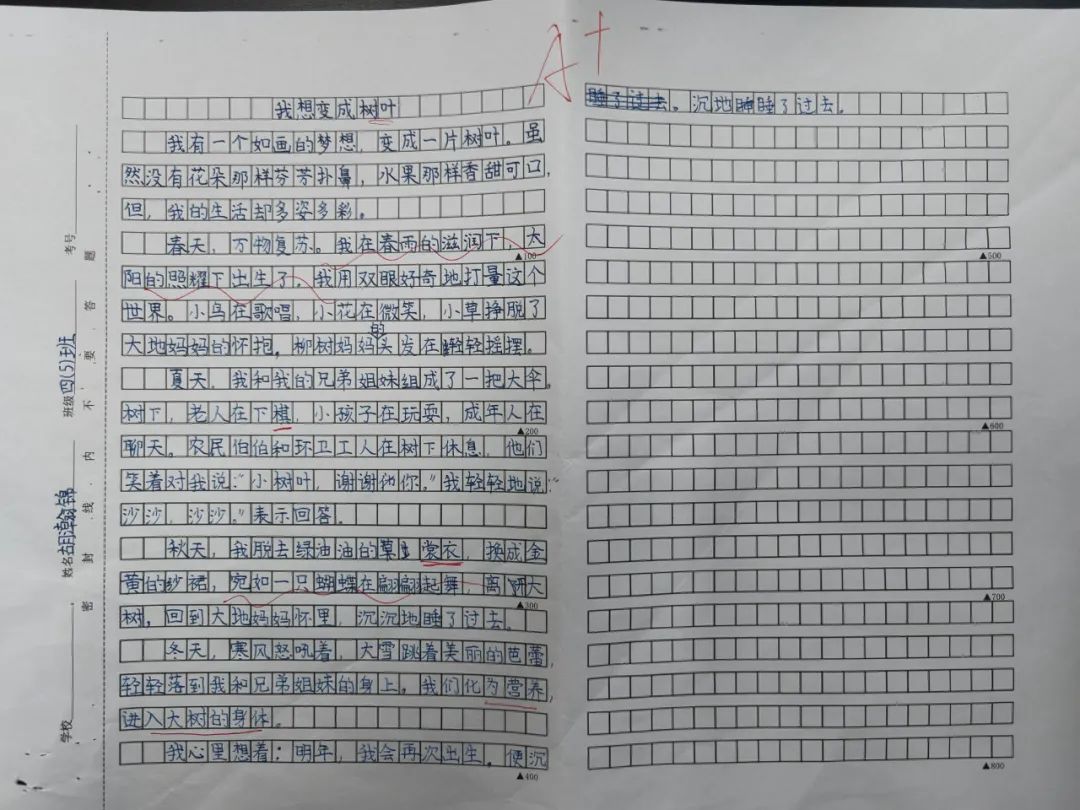 A+
我想变成树叶
我有一个如画的梦想，变成一片树叶。虽
然没有花朵那样芬芳扑鼻，水果那样香甜可口，
但，我的生活却多姿多彩。
春天，万物复苏。我在春雨的滋润下，太
阳的照耀下出生了，我用双眼好奇地打量这个
世界。小鸟在歌唱，小花在微笑，小草挣脱了
大地妈妈的怀抱，柳树妈妈的头发在轻轻摇摆。
夏天，我和我的兄弟姐妹组成了一把大伞。
树下，老人在下棋，小孩子在玩耍，成年人在
聊天。农民伯伯和环卫工人在树下休息，他们
笑着对我说：“小树叶，谢谢你。”我轻轻地说：“
沙沙，沙沙。”表示回答。
秋天，我脱去绿油油的裳衣，换成金
黄的纱裙，宛如一只蝴蝶在翩翩起舞，离开大
树，回到大地妈妈怀里，沉沉地睡了过去。
冬天，寒风怒吼着，大雪跳着美丽的芭蕾，
轻轻落到我和兄弟姐妹的身上。我们化为营养，
进入大树的身体。
我心里想着：明年，我会再次出生。便沉
睡了过去。沉地睡睡了过去。
▲100
▲200
▲300
▲400
▲500
▲600
▲700
▲800
学校
姓名
班级四(5)班
考号
密封线内不要答题